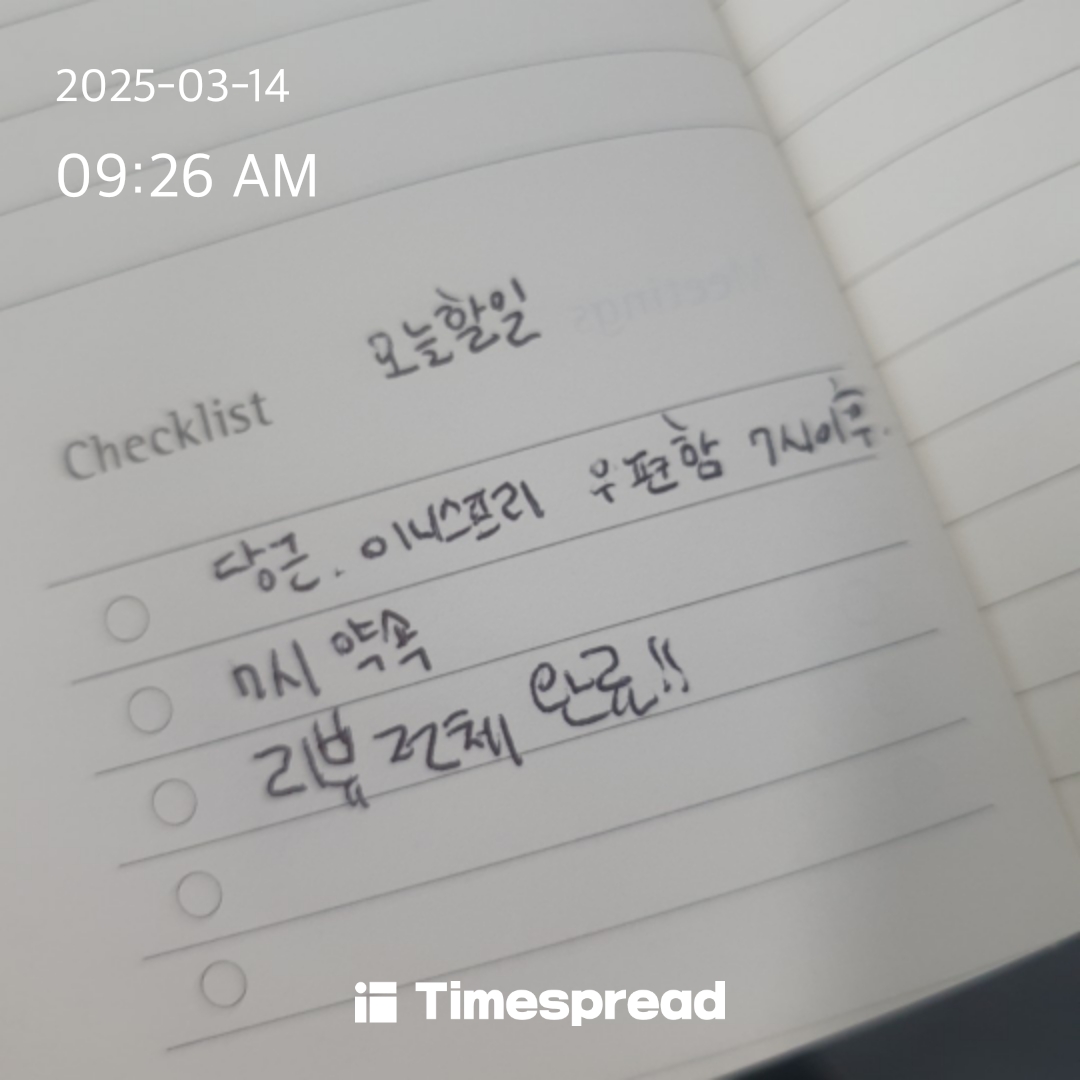 2025-03-14
09:26 AM
오늘할일
Checklist
당근. 이니스프리 우편함 7시이후.
7시 약속
리뷰 전체 완료!!
Timespread